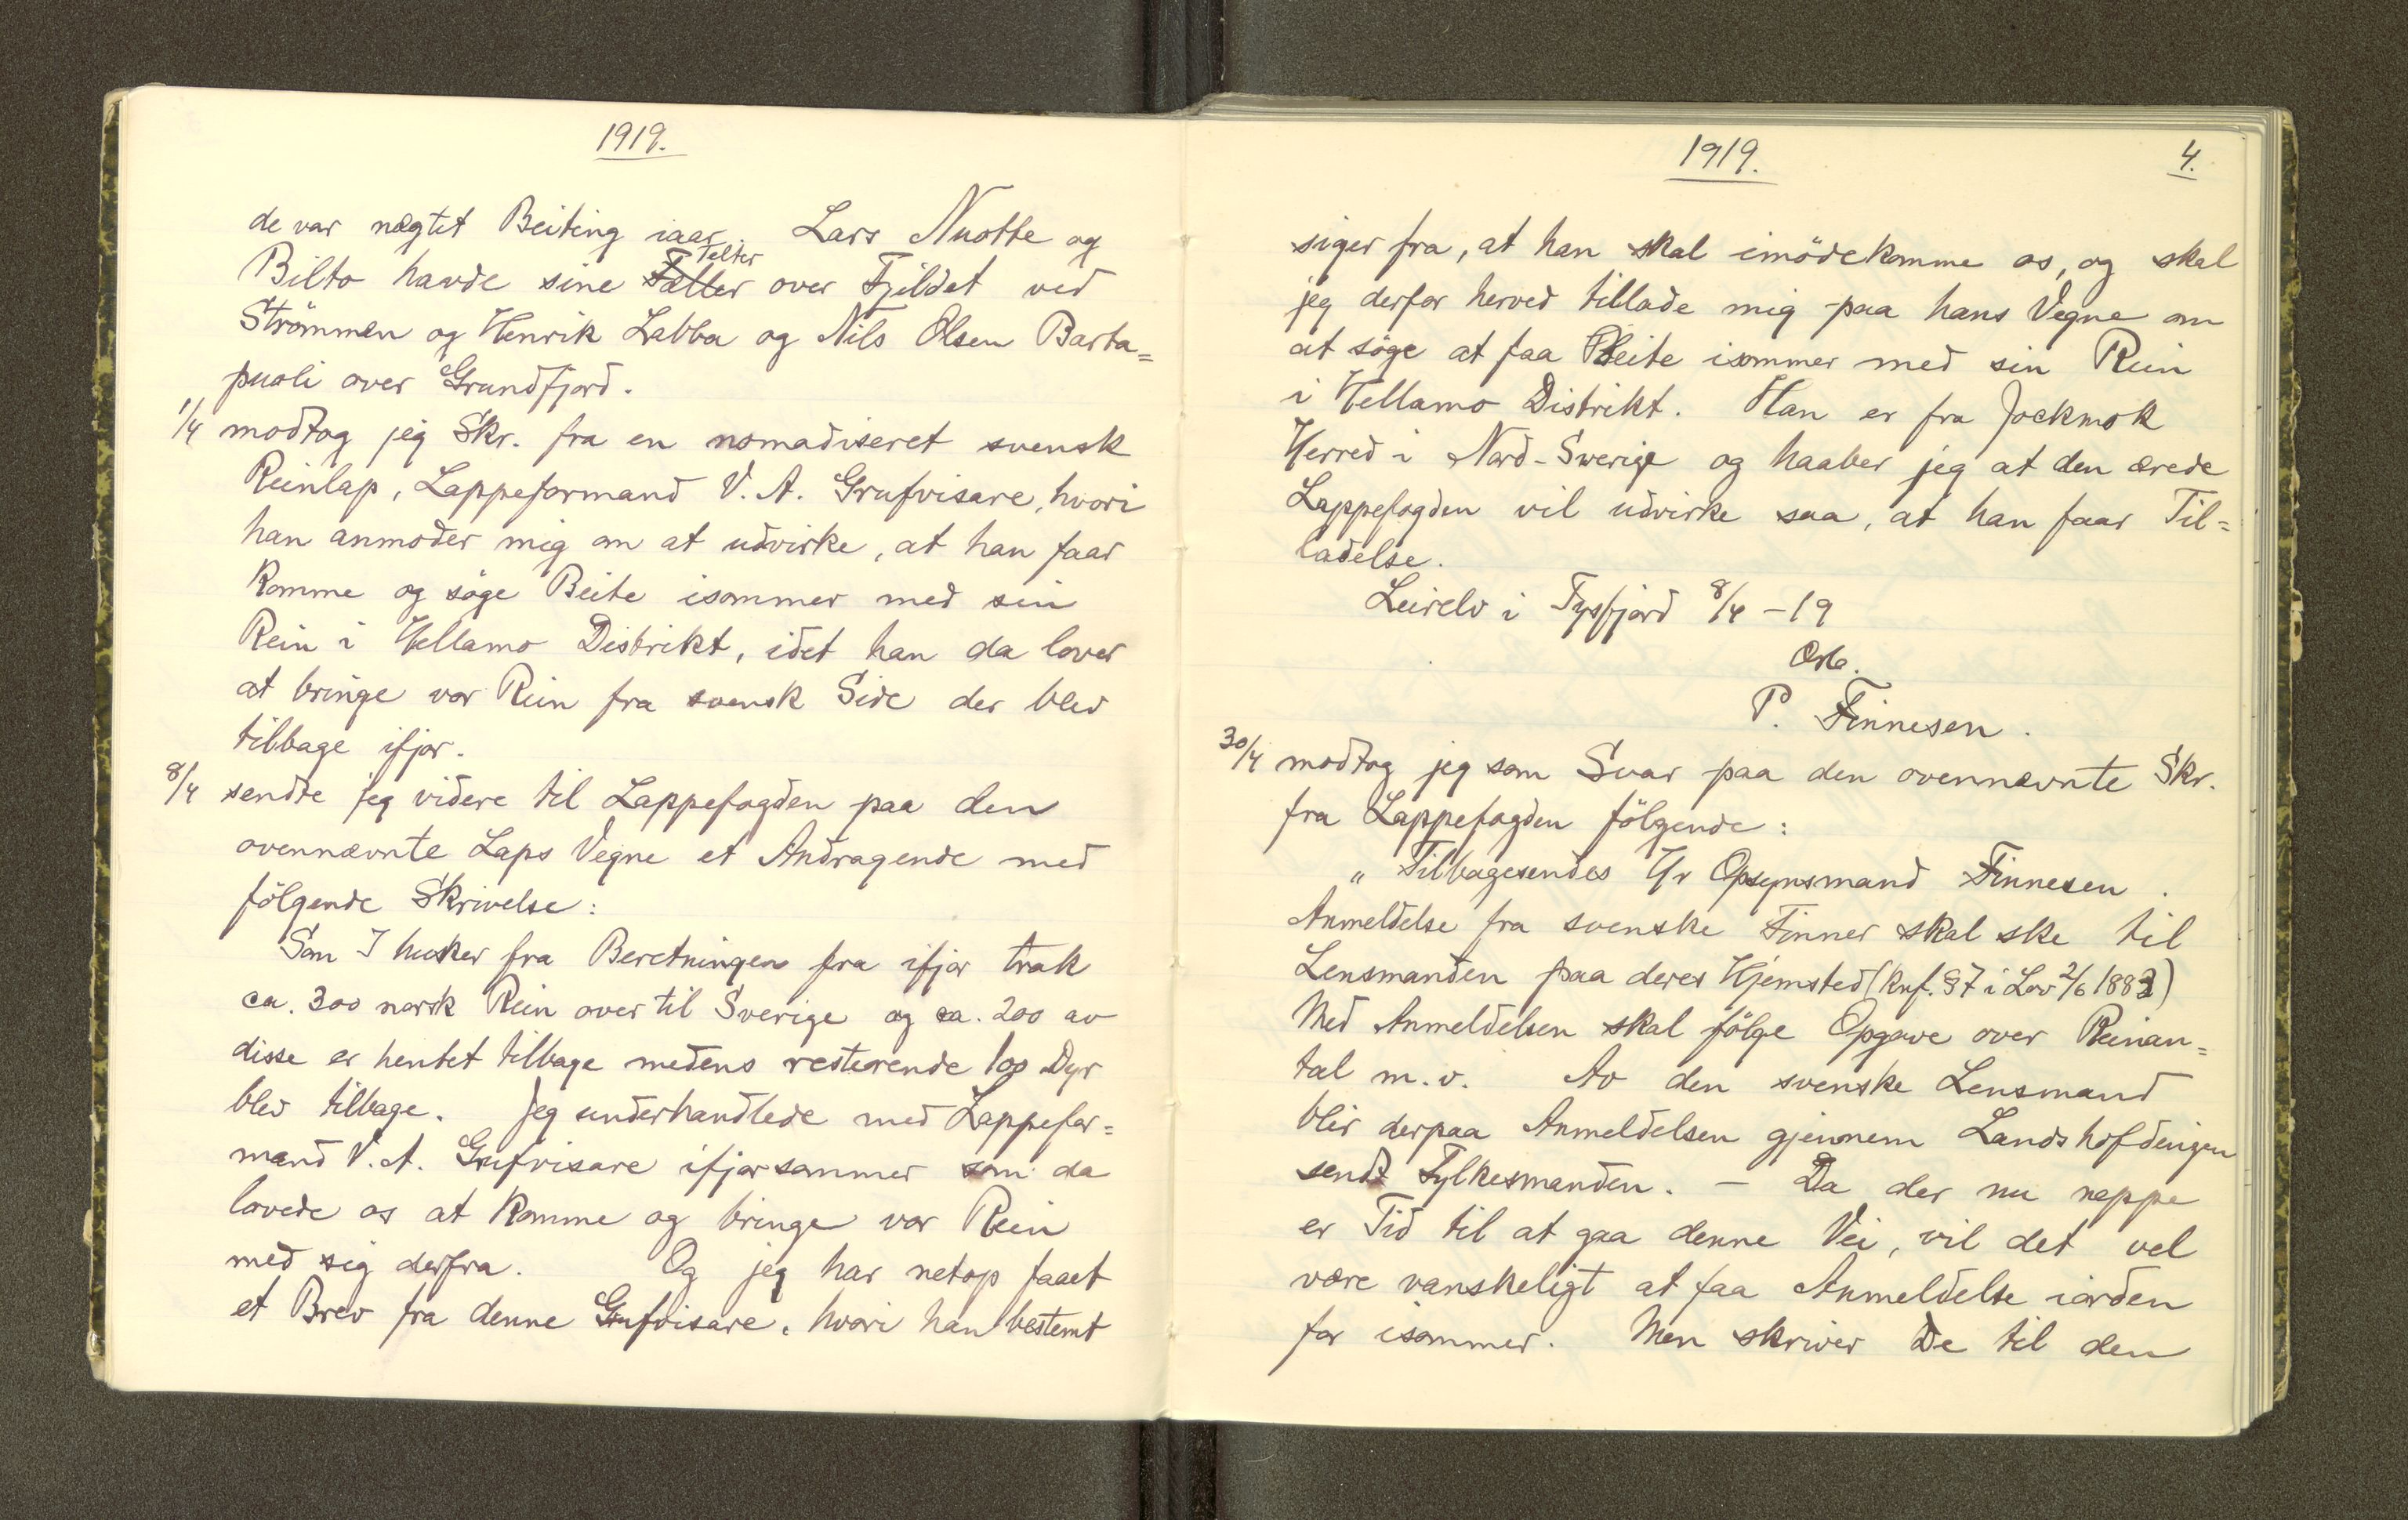 1919.
de var nægtet Beiting iaar. Lars Nuotte og
Telter
Bilto havde sine Fæller over Fjeldet ved
Strömmen og Henrik Labba og Nils Olsen Barta=
puoli over Grundfjord.
1/4 modtog jeg Skr. fra en nomadiseret svensk
Reinlap, Lappeformand V. A. Grufvisare, hvori
han anmoder mig om at udvirke, at han faar
komme og söge Beite isommer med sin
Rein i Hellamo Distrikt, idet han da lover
at bringe vor Rein fra svensk Side der blev
tilbage ifjor.
8/4 sendte jeg videre til Lappefogden paa den
ovennævnte Laps Vegne et Andragende med
fölgende Skrivelse:
Som I husker fra Beretningen fra ifjor trak
ca. 300 norsk Rein over til Sverige og ca. 200 av
disse er hentet tilbage medens resterende 100 Dyr
blev tilbage. Jeg underhandlede med Lappefor=
mand V. A. Grufvisare ifjorsommer som da
lovede os at komme og bringe vor Rein
med sig derfra. Og jeg har netop faaet
et Brev fra denne Grufvisare, hvori han bestemt
1919.
4.
siger fra, at han skal imödekomme os, og skal
jeg derfor herved tillade mig paa hans Vegne om
at söge at faa Beite isommer med sin Rein
i Hellamo Distrikt. Han er fra Jockmok
Herred i Nord-Sverige og haaber jeg at den ærede
Lappefogden vil udvirke saa, at han faar Til=
ladelse.
Leirelv i Tysfjord 8/4 - 19
Ærb.
P. Finnesen.
30/4 modtog jeg som Svar paa den ovennævnte Skr.
fra Lappefogden fölgende:
„ Tilbagesendes Hr Opsynsmand Finnesen.
Anmeldelse fra svenske Finner skal ske til
Lensmanden paa deres Hjemsted (knf. § 7 i Lov 2/6 1883)
Med Anmeldelsen skal fölge Opgave over Reinan=
tal m. v. Av den svenske Lensmand
blir derpaa Anmeldelsen gjennem Landshöfdingen
sendt Fylkesmanden. — Da der nu neppe
er Tid til at gaa denne Vei, vil det vel
være vanskeligt at faa Anmeldelse iorden
for isommer. Men skriver De til den